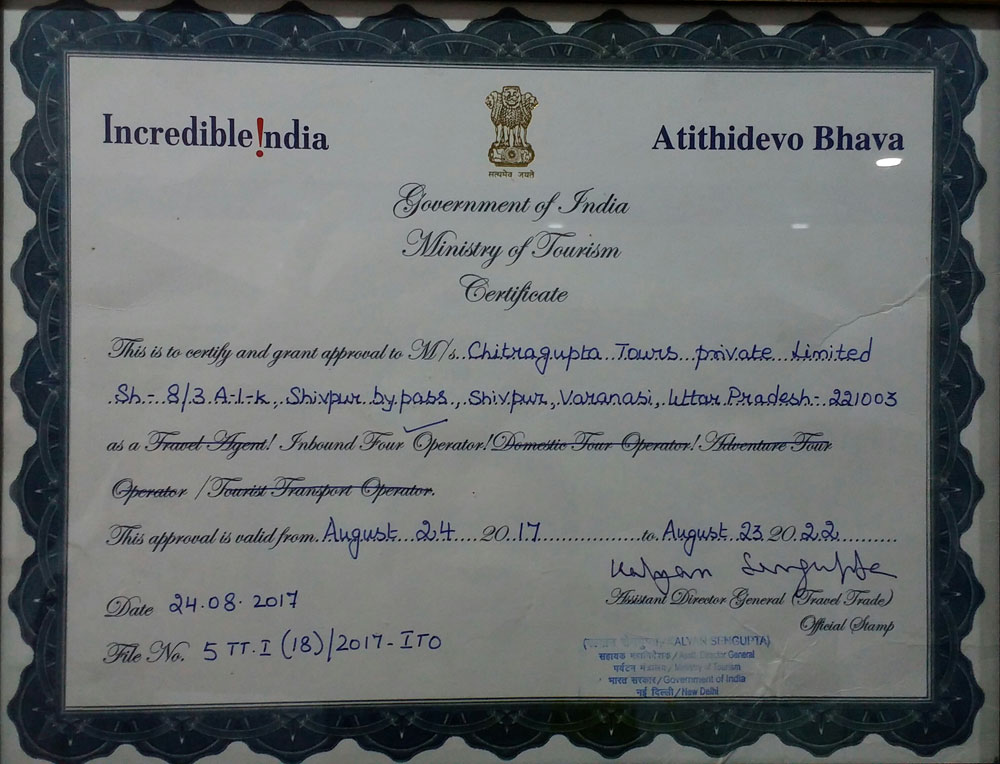 Incredible!ndia
Atithidevo Bhava
सत्यमेव जयते
Government of India
Ministry of Tourism
Certificate
This is to certify and grant approval to M/s..Chitragupta Tours private Limited
Sh.- 8/3 A-1-k, Shivpur by pass, Shivpur, Varanasi, Uttar Pradesh- 221003
as a Travel Agent! Inbound Four Operator! Domestic Tour Operator! Adventure Tour
Operator / Tourist Transport Operator.
This approval is valid from August 24 2017 to August 23 2022
Kalyan Sengupta
Date 24.08.2017
Assistant Director General (Travel Trade)
Official Stamp
File No. 5 TT.I (18)/2017-ITO
KALYAN SENGUPTA)
सहायक महानिदेशक/Asstt. Director General
पर्यटन मंत्रालय/Ministry of Tourism
भारत सरकार/Government of India
नई दिल्ली/New Delhi